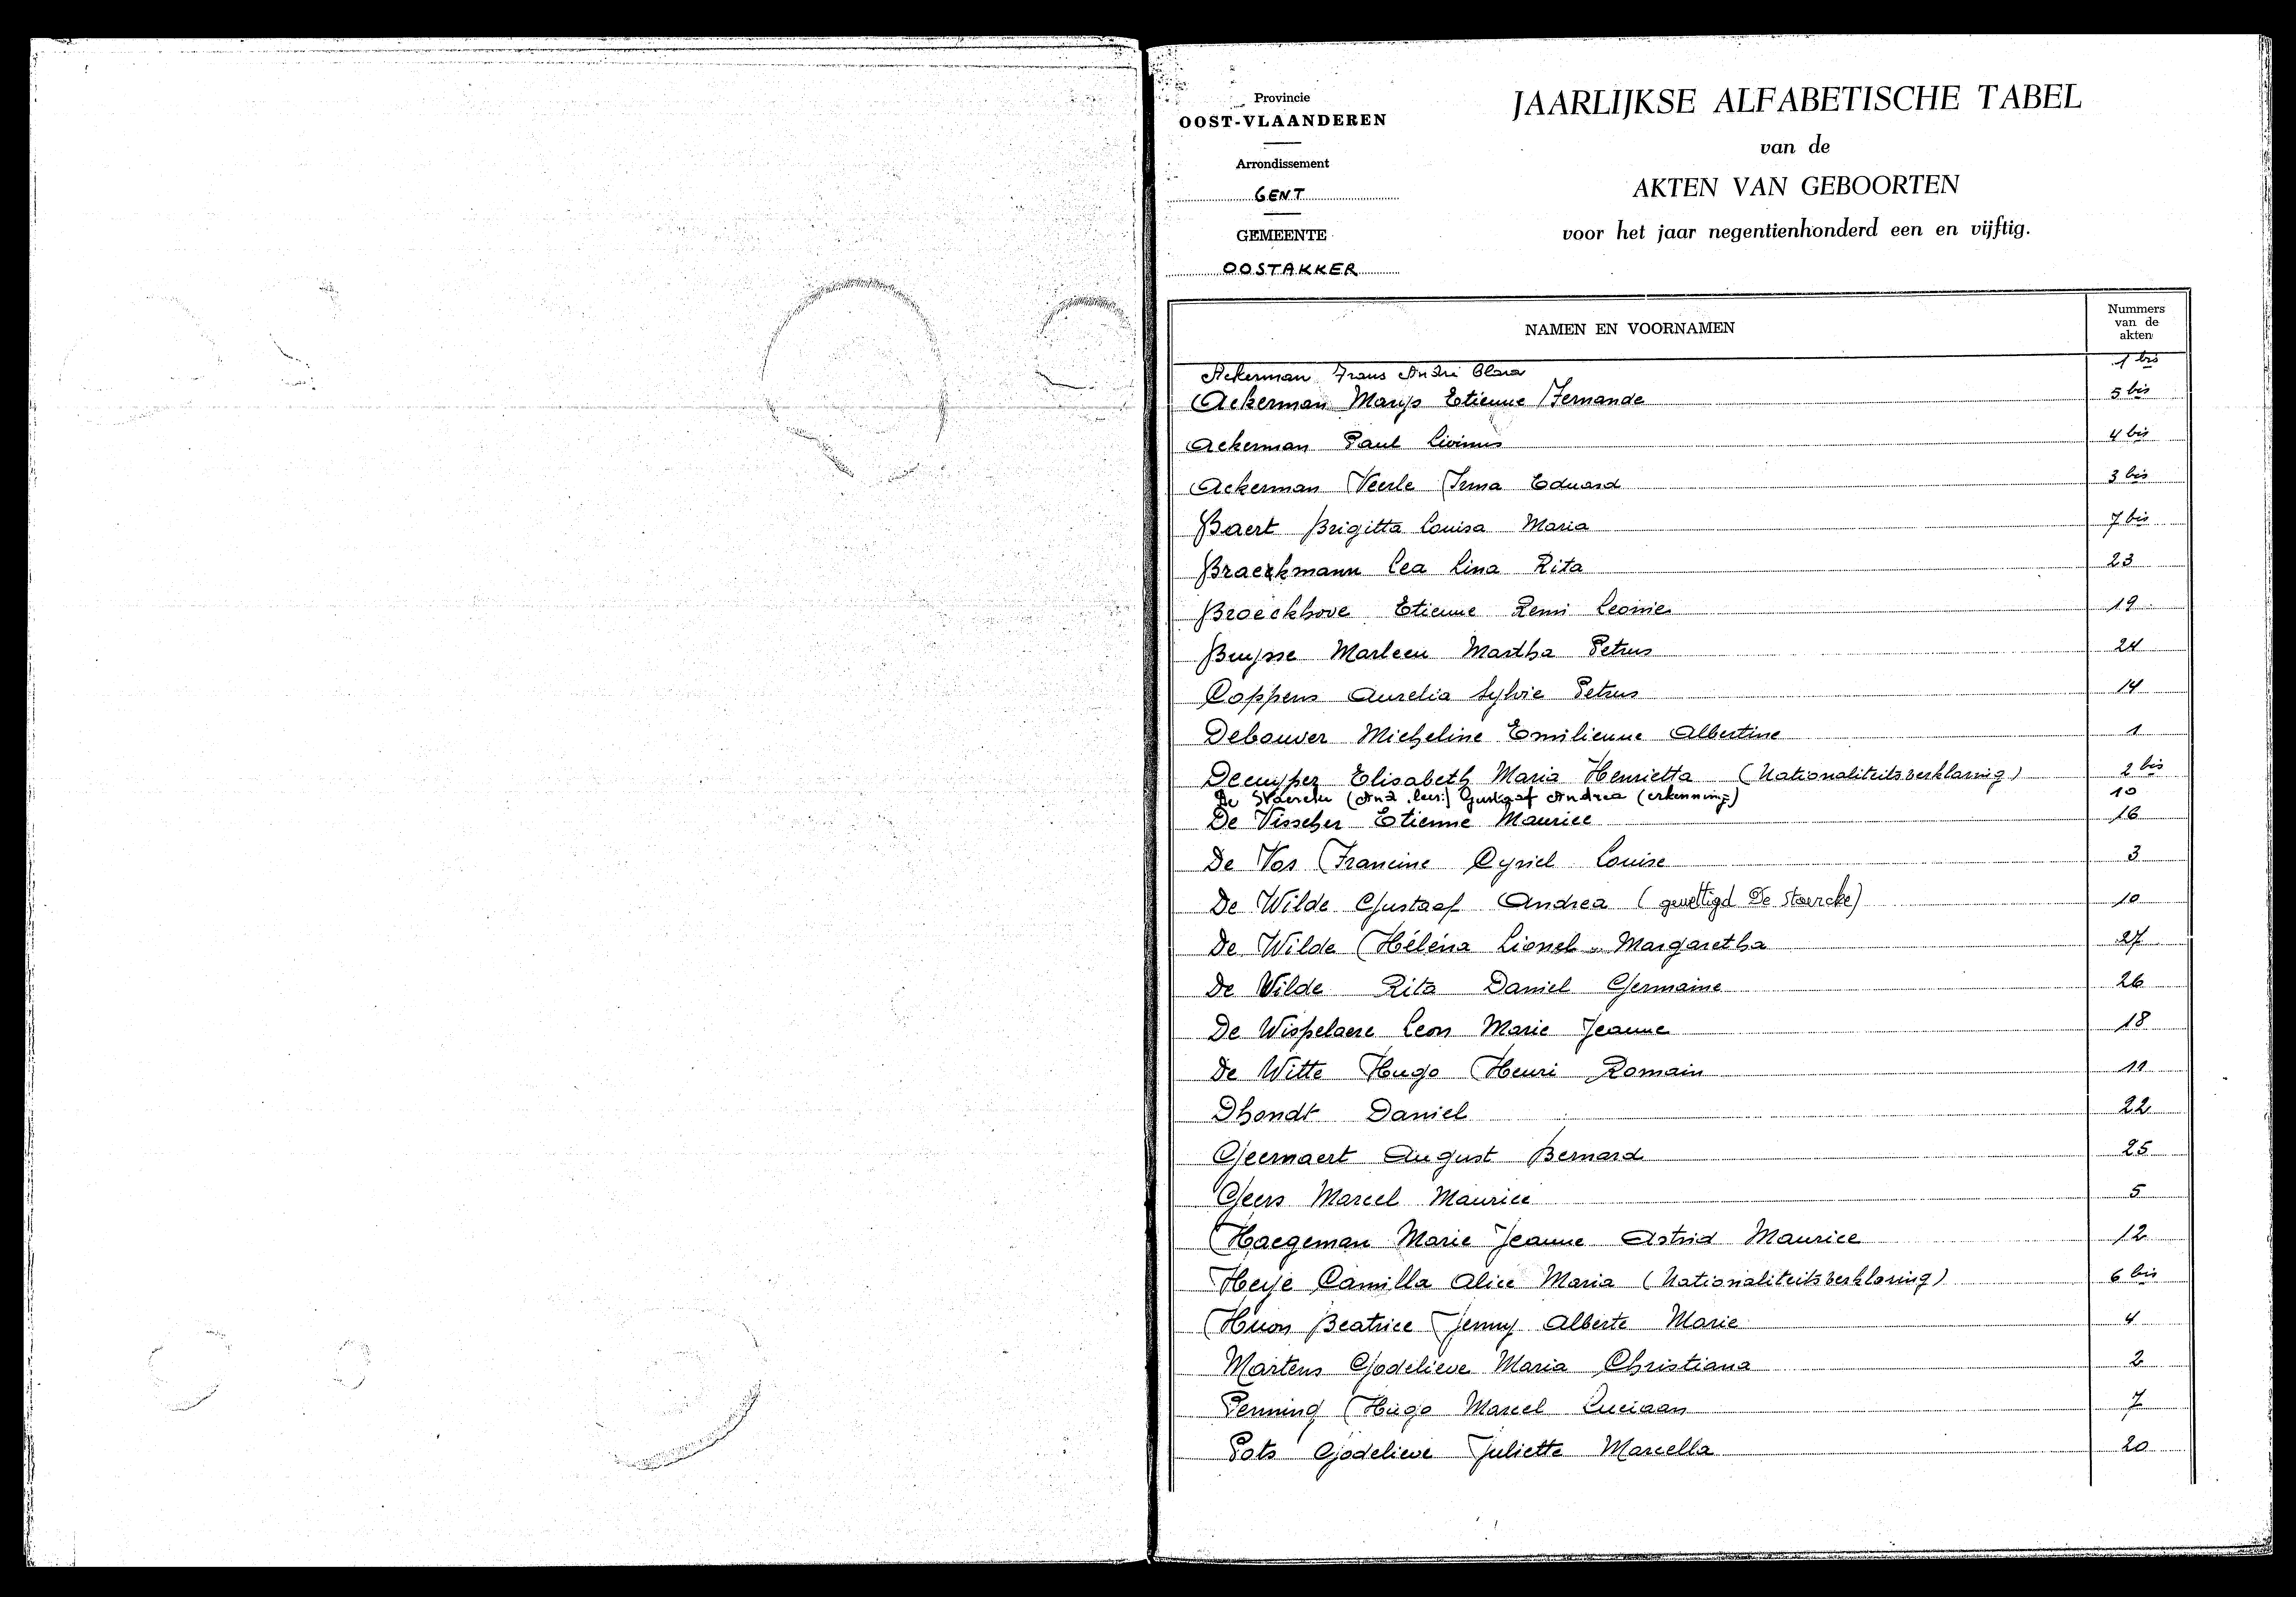 Provincie
OOST-VLAANDEREN
Arrondissement
GENT
GEMEENTE
OOSTAKKER
JAARLIJKSE ALFABETISCHE TABEL
van de
AKTEN VAN GEBOORTEN
voor het jaar negentienhonderd een en vijftig.
NAMEN EN VOORNAMEN
Nummers
van de
akten
Ackerman Frans André Clara 1 bis
Ackerman Etienne Fernande 5 bis
Ackerman Paul Livinus 4 bis
Ackerman Veerle Irma Eduard 3 bis
Baert Brigitta Louisa Maria 7 bis
Braeckmann Lea Lina Rita 23
Broeckhove Etienne Remi Leonie 19
Buysse Marleen Martha Petrus 24
Coppens Aurelia Sylvie Petrus 14
Debouver Micheline Emilienne Albertine 1
Decuyper Elisabeth Maria Henrietta (Nationaliteitsverklaring) 2 bis
De Gustaaf Andrea (erkenning) 10
De Visscher Etienne Maurice 16
De Vos Francine Cyriel Louise 3
De Wilde Gustaaf Andrea (gewettigd De Staercke) 10
De Wilde Hélèna Lionel Margaretha 27
De Wilde Rita Daniel Germaine 26
De Wispelaere Leon Marie Jeanne 18
De Witte Hugo Henri Romain 11
Dhondt Daniel 22
Geernaert August Bernard 25
Geers Marcel Maurice 5
Haegeman Marie Jeanne Astrid Maurice 12
Heye Camilla Alice Maria (Nationaliteitsverklaring) 6 bis
Huon Beatrice Jenny Alberte Marie 4
Martens Godelieve Maria Christiana 2
Penning Hugo Marcel Luciaan 7
Pots Godelieve Juliette Marcella 20